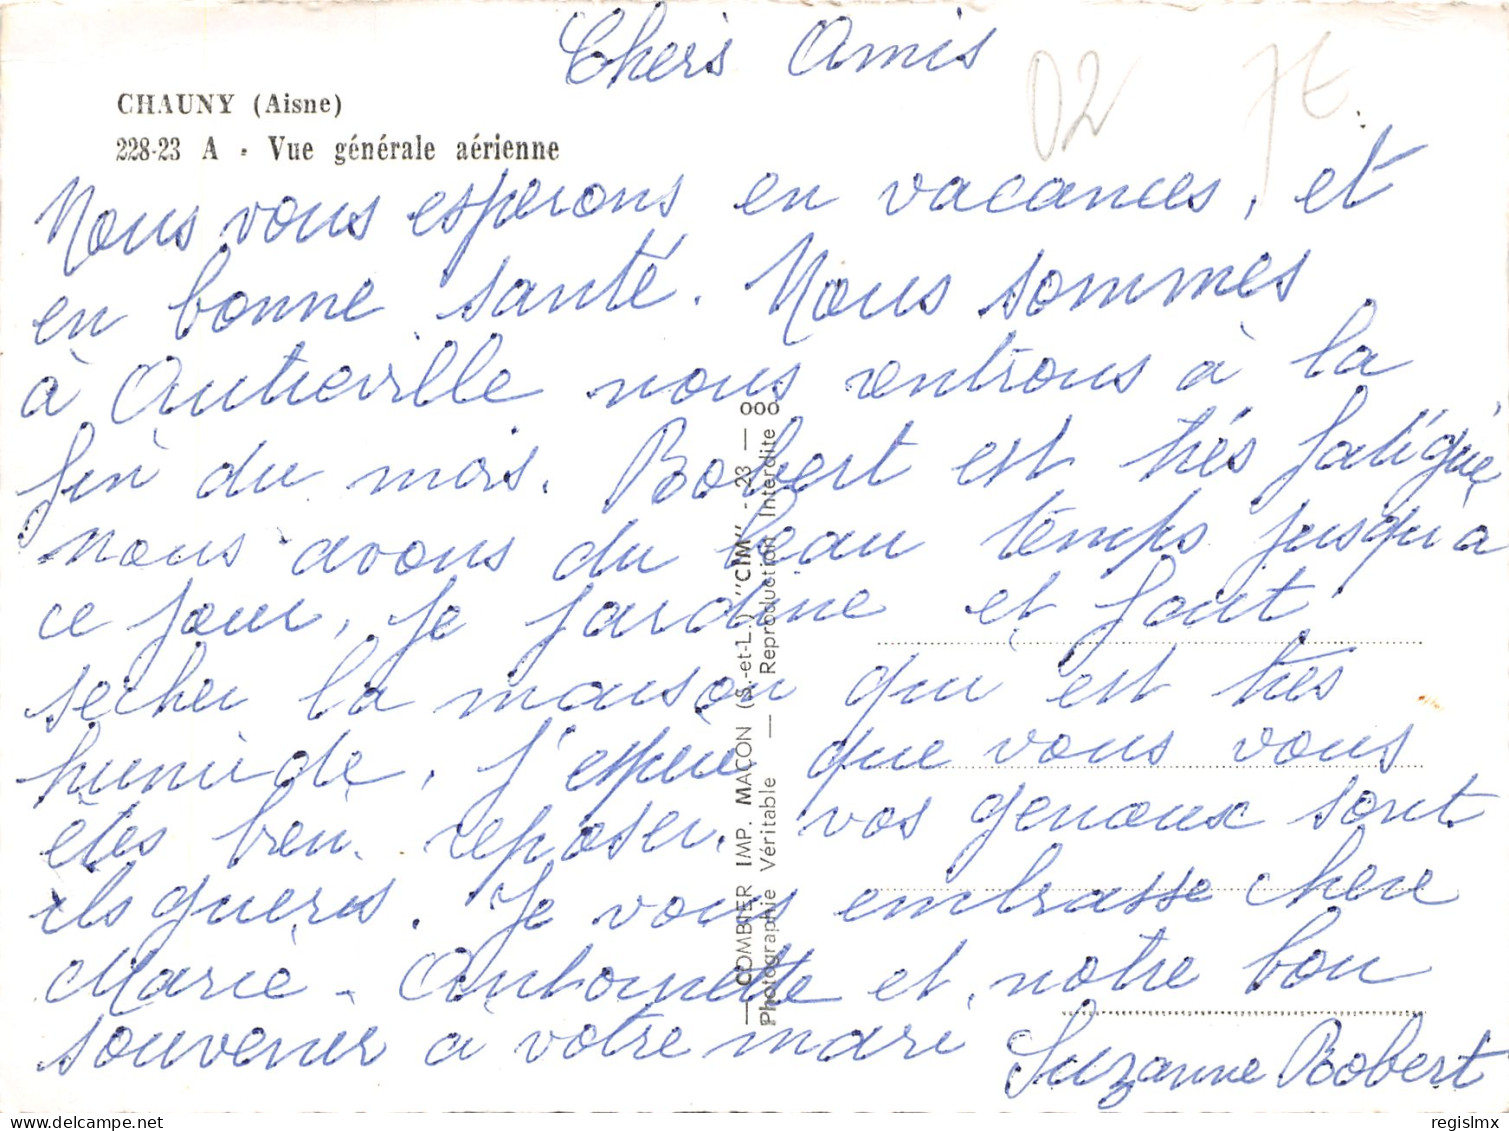 Chers Amis
02 7E
CHAUNY (Aisne)
228-23 A - Vue générale aérienne
Nous vous esperons en vacances, et
en bonne santé. Nous sommes
à Autreville nous rentrons à la
fin du mois. Robert est très fatigué
nous avons du beau temps jusqu'a
ce jour, je jardine et fait
secher la maison qui est très
humide, j'espere que vous vous
êtes bien reposer. vos genoux sont
ils gueris. Je vous embrasse chere
Marie - Antoinette et notre bon
souvenir à votre mari
Suzanne Robert
— COMBIER IMP. MACON (S.-et-L.) "CIM" - 23 — 000
Photographie Véritable — Reproduction Interdite
regislmx